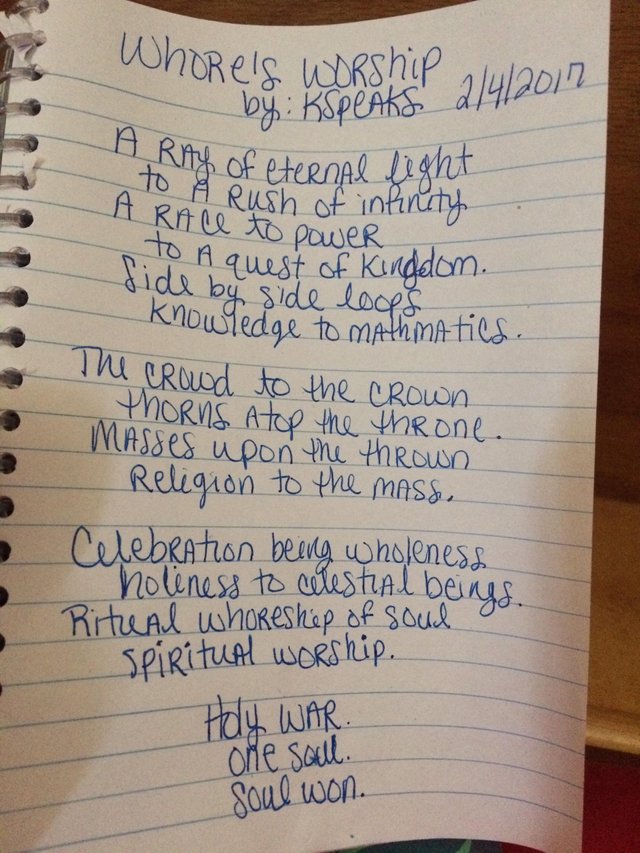 Whore's Worship
by: KSpeaks 2/4/2017
A Ray of eternal light
to A Rush of infinity
A Race to power
to A quest of Kingdom.
Side by side loops
Knowledge to mathmatics.
The crowd to the crown
thorns Atop the throne.
Masses upon the thrown
Religion to the mass.
Celebration being wholeness
holiness to celestial beings.
Ritual whoreship of soul
spiritual worship.
Holy war.
one soul.
soul won.